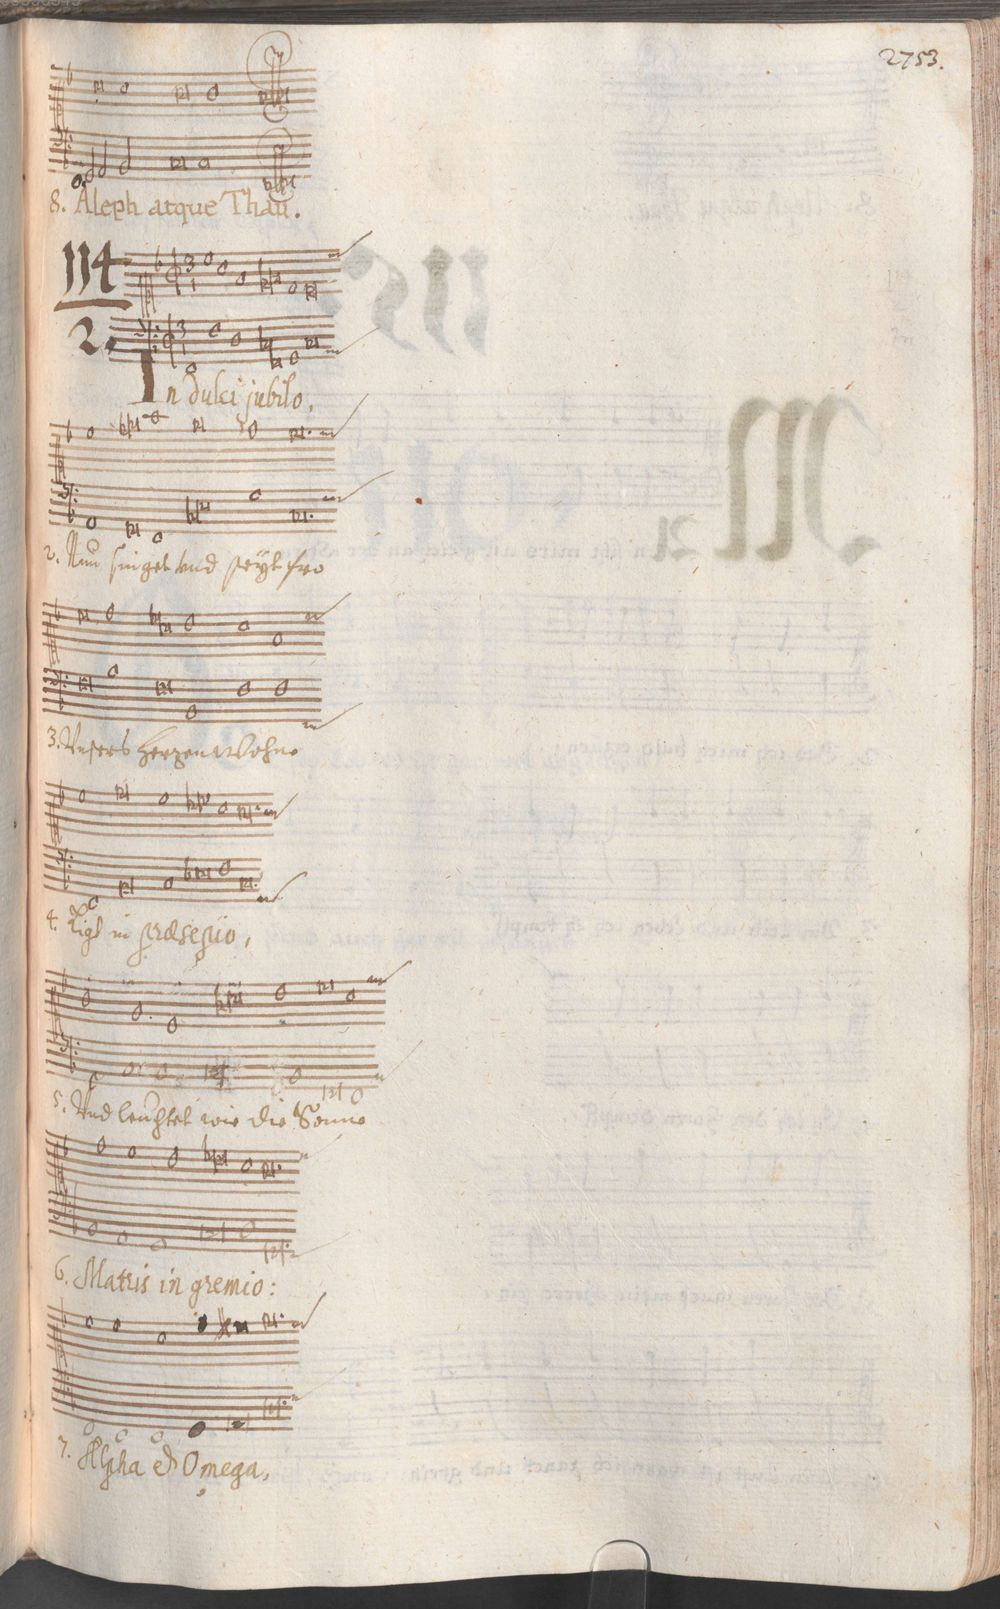 2753.
8. Aleph atque Thau.
114
2.
In dulci jubilo,
2. Nun singet vnd seyt fro
3. Vnsers Hertzen Wohne
4. Ligt in præsepio,
5. Vnd leuchtet wie die Sonne
6. Matris in gremio:
7. Alpha & Omega,